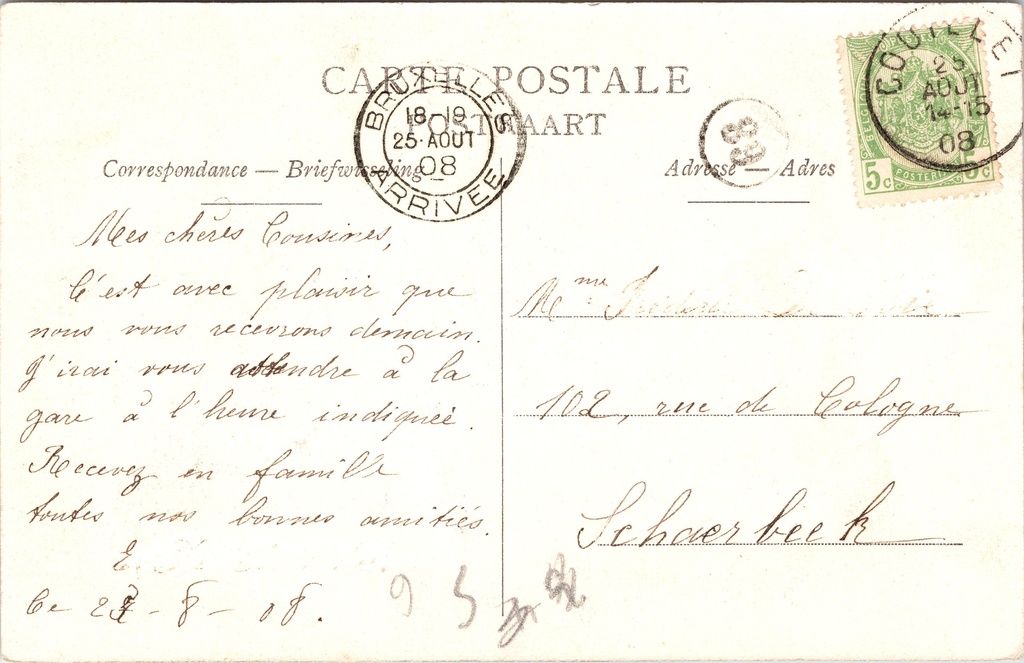 CARTE POSTALE
POSTKAART
Correspondance — Briefwisseling
Adresse — Adres
BRUXELLES
18-19
25·AOUT
08
ARRIVEE
COUILLET
25
AOUT
14-15
08
5c POSTERIJEN 5c
Mes chères Cousines,
C'est avec plaisir que
nous vous recevrons demain.
J'irai vous attendre à la
gare à l'heure indiquée.
Recevez en famille
toutes nos bonnes amitiés.
Ce 25 - 8 - 08.
Mme
102, rue de Cologne
Schaerbeek